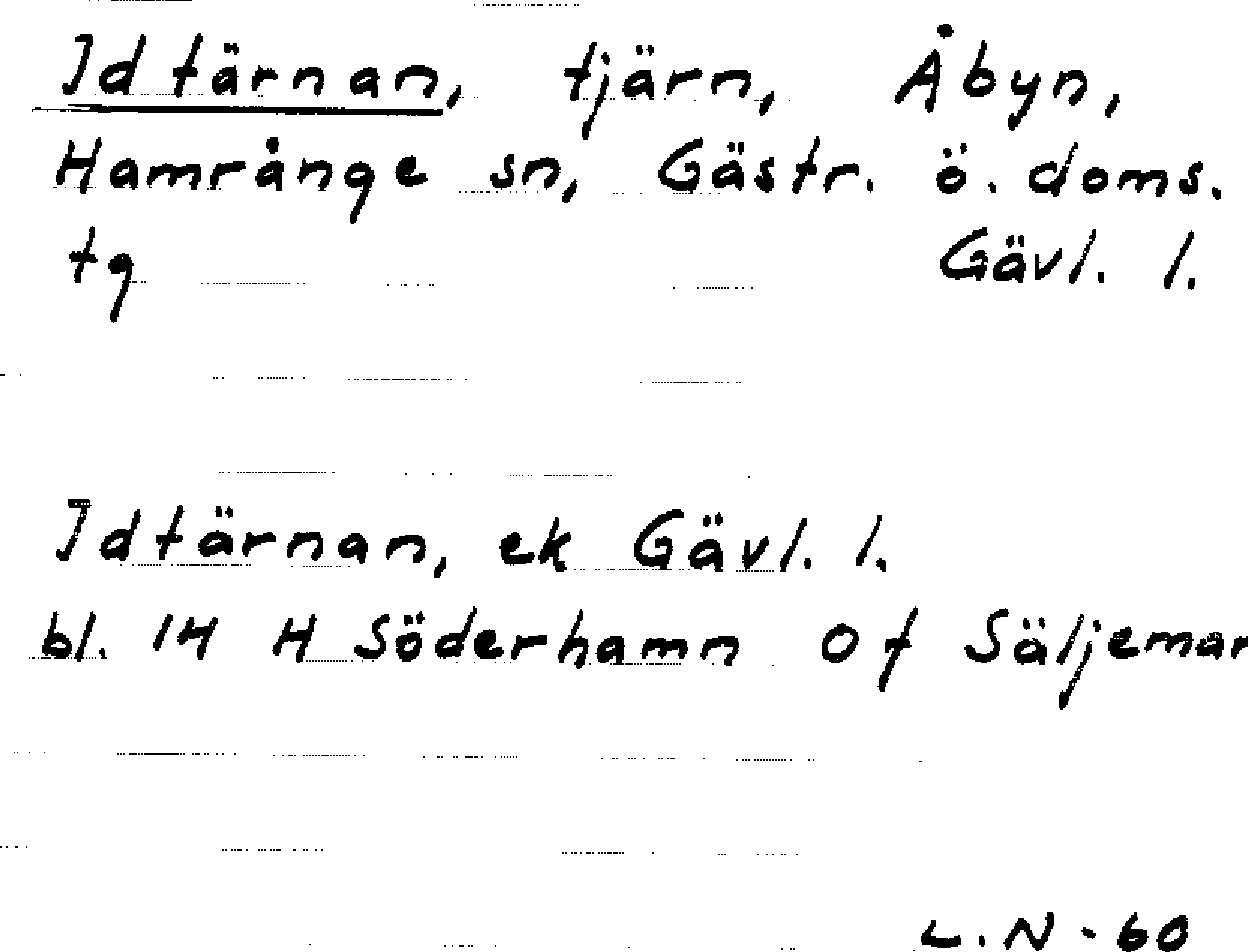 Idtärnan, tjärn, Åbyn,
Hamrånge sn, Gästr. ö. doms.
tg Gävl. l.
Idtärnan, ek Gävl. l.
bl. 14 H Söderhamn Of Säljemar
L.N-60